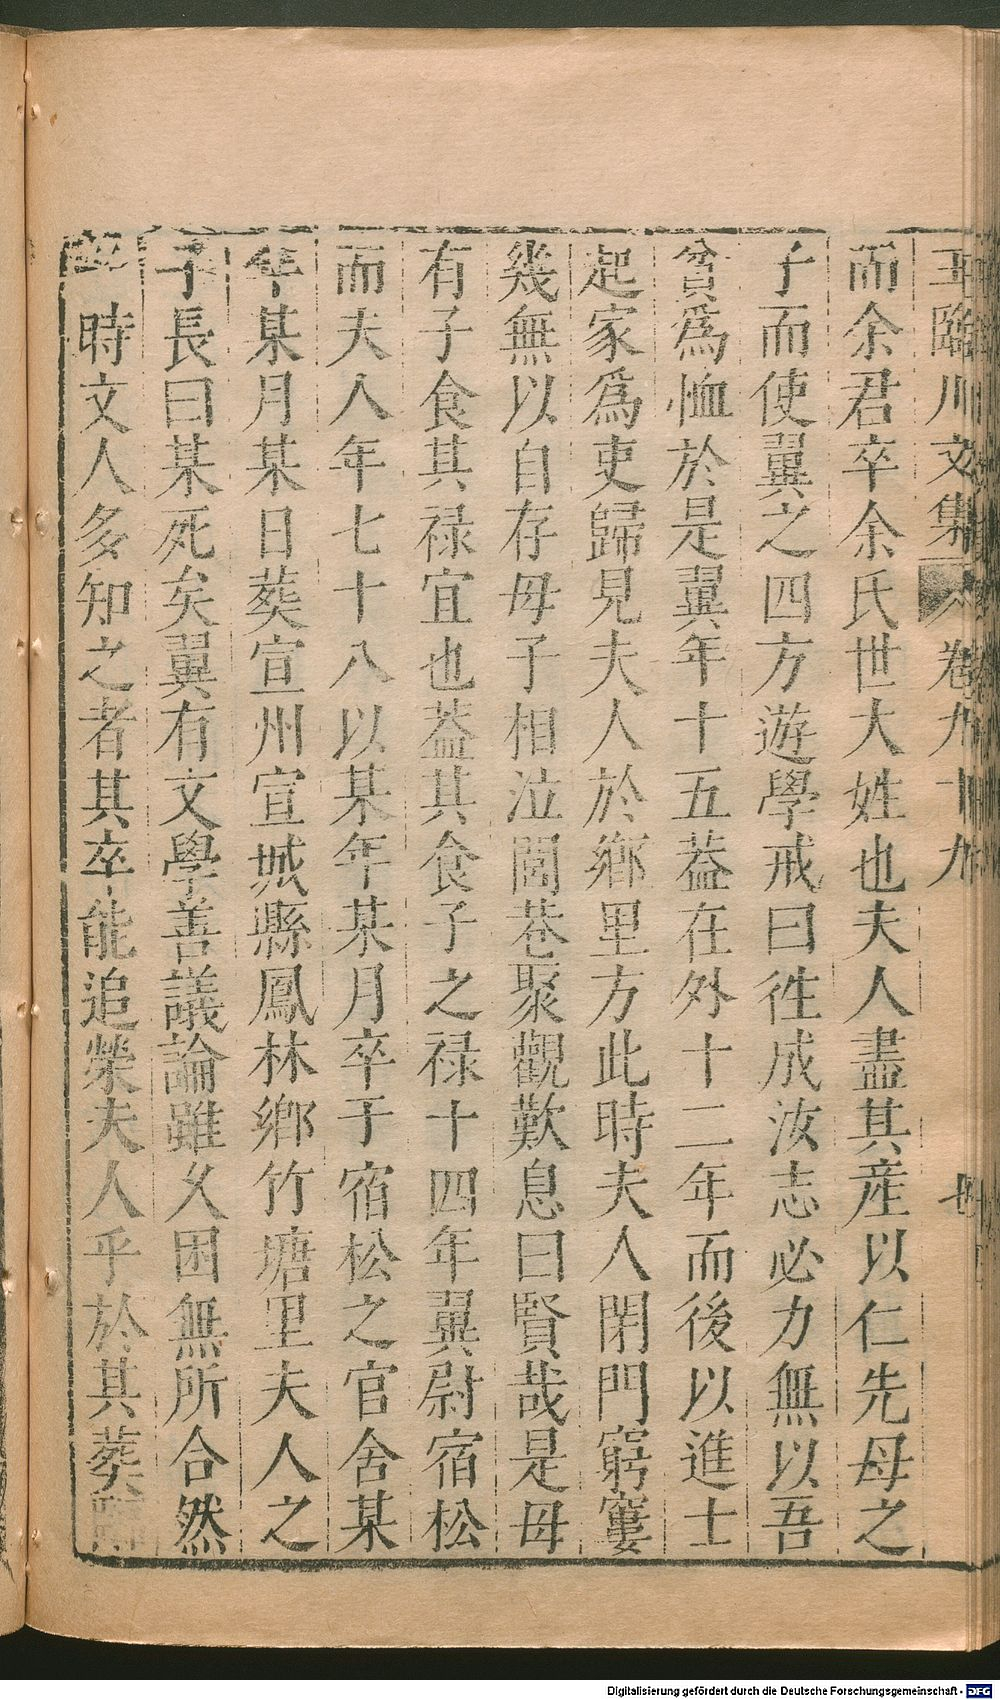 王臨川文集 卷九十九
而余君卒余氏世大姓也夫人盡其産以仁先母之
子而使翼之四方遊學戒曰徃成汝志必力無以吾
貧爲恤於是翼年十五葢在外十二年而後以進士
起家爲吏歸見夫人於鄉里方此時夫人閉門窮窶
幾無以自存母子相泣閭巷聚觀歎息曰賢哉是母
有子食其禄宜也葢其食子之禄十四年翼尉宿松
而夫人年七十八以某年某月卒于宿松之官舍某
年某月某日葬宣州宣城縣鳳林鄉竹塘里夫人之
子長曰某死矣翼有文學善議論雖久困無所合然
時文人多知之者其卒能追榮夫人乎於其葬
Digitalisierung gefördert durch die Deutsche Forschungsgemeinschaft - DFG